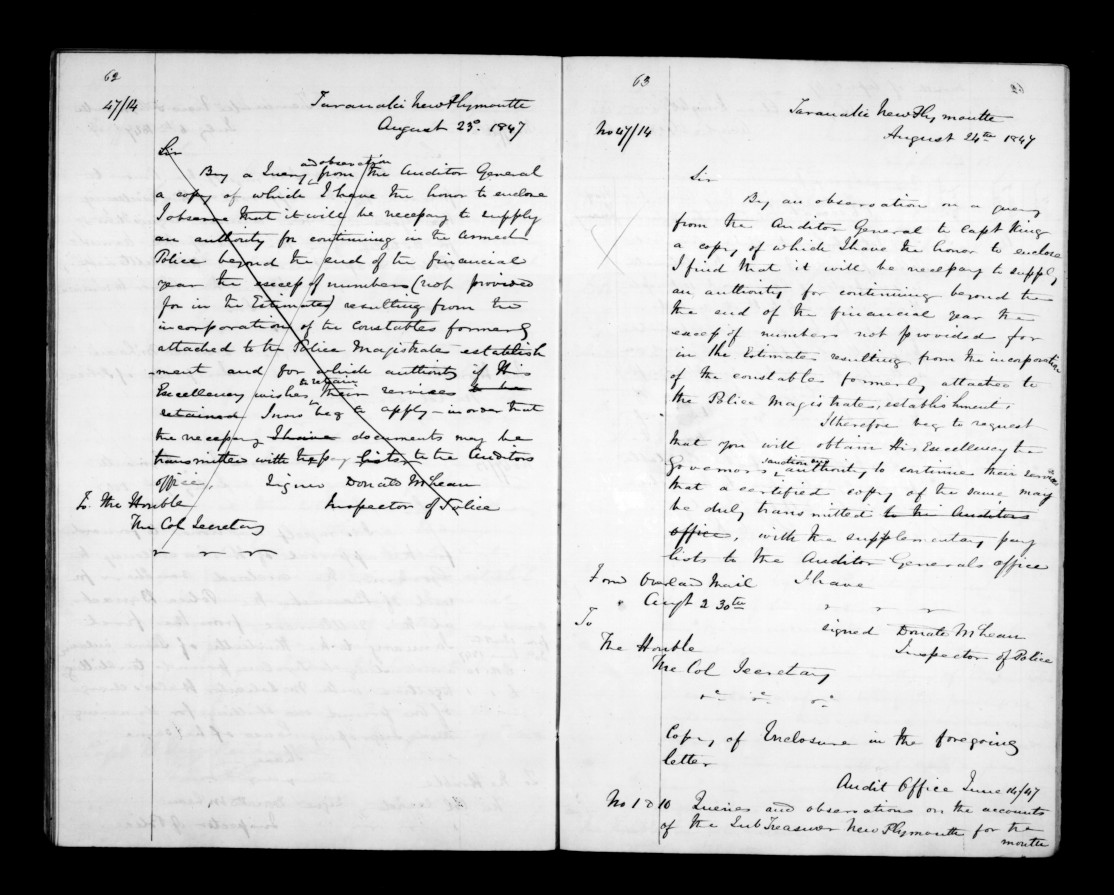 62
47/14
Taranaki New Plymouth
August 23d. 1847
Sir
and observation
By a Query from the Auditor General
a copy of which I have the honor to enclose
I observe that it will be necessary to supply
an authority for continuing in the Armed
Police beyond the end of the financial
year the excess of numbers (not provided
for in the Estimates) resulting from the
incorporation of the constables formerly
attached to the Police Magistrates establish
-ment and for which authority if His
to retain
Excellency wishes their services to be
retained I now beg to apply - in order that
the necessary I have documents may be
transmitted with the pay lists to the Auditors
office. Signed Donald McLean
To The Honble Inspector of Police
The Col Secretary
63
No 47/14
Taranaki New Plymouth
August 24th 1847
Sir
By an observation on a query
from the Auditor General to Capt King
a copy of which I have the honor to enclose
I find that it will be necessary to supply
an authority for continuing beyond the
the end of the financial year the
excess of number not provided for
in the Estimates resulting from the incorporation
of the constables formerly attached to
the Police Magistrates, establishment.
I therefore beg to request
that you will obtain His Excellency the
sanction and
Governors authority to continue their services
that a certified copy of the same may
be duly transmitted to the Auditors
office, with the supplementary pay
lists to the Auditor Generals office
I have
Overland Mail
Augt 30th
signed Donald McLean
Inspector of Police
To
The Honble
The Col Secretary
Copy of Enclosure in the foregoing
letter
Audit Office June 14/47
No 1 to 10 Queries and observations on the accounts
of the Sub Treasurer New Plymouth for the
month